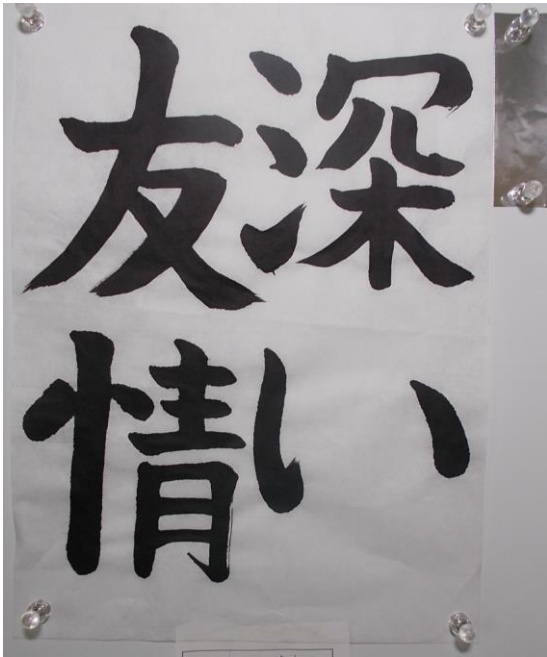 深い
友情